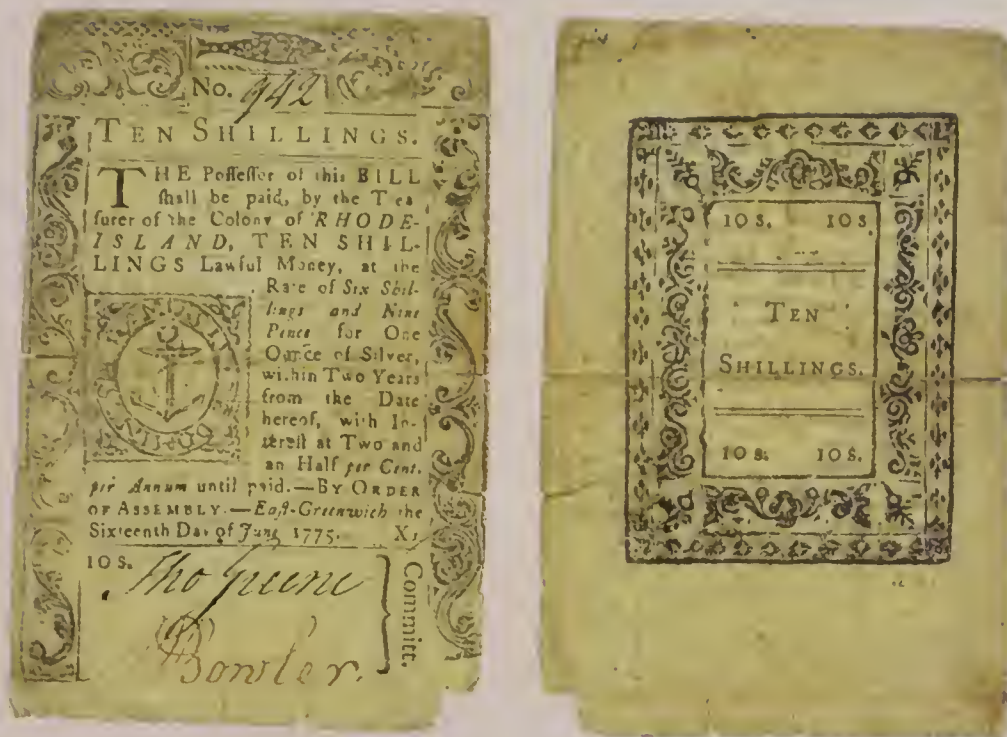 No. 942
TEN SHILLINGS.
THE Poſſeſſor of this BILL
ſhall be paid, by the Trea
ſurer of the Colony of RHODE-
ISLAND, TEN SHIL-
LINGS Lawful Money, at the
Rate of Six Shil-
lings and Nine
Pence for One
Ounce of Silver,
within Two Years
from the Date
hereof, with In-
tereſt at Two and
an Half per Cent.
per Annum until paid.—BY ORDER
OF ASSEMBLY.—Eaſt-Greenwich the
Sixteenth Day of June, 1775.
10 S.
Tho Greene
Bowler.
Committ.
10 S. 10 S.
TEN
SHILLINGS.
10 S. 10 S.